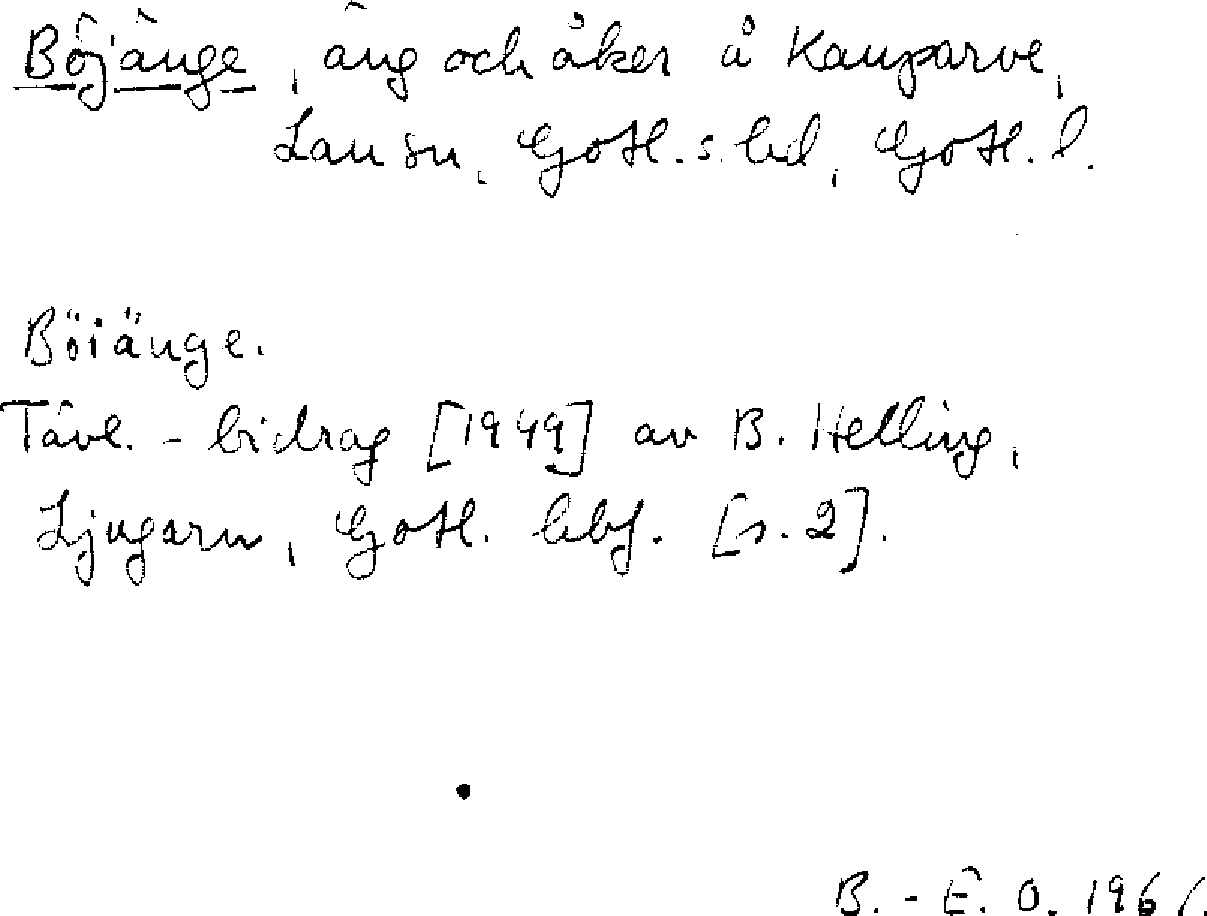 Böjänge, äng och åker å Kauparve,
Lau sn, Gotl. s. hd, Gotl. l.
Böiänge.
Tävl. - bidrag [1949] av B. Helling,
Ljugarn, Gotl. hbf. [s. 2].
B. - E. O. 1961.